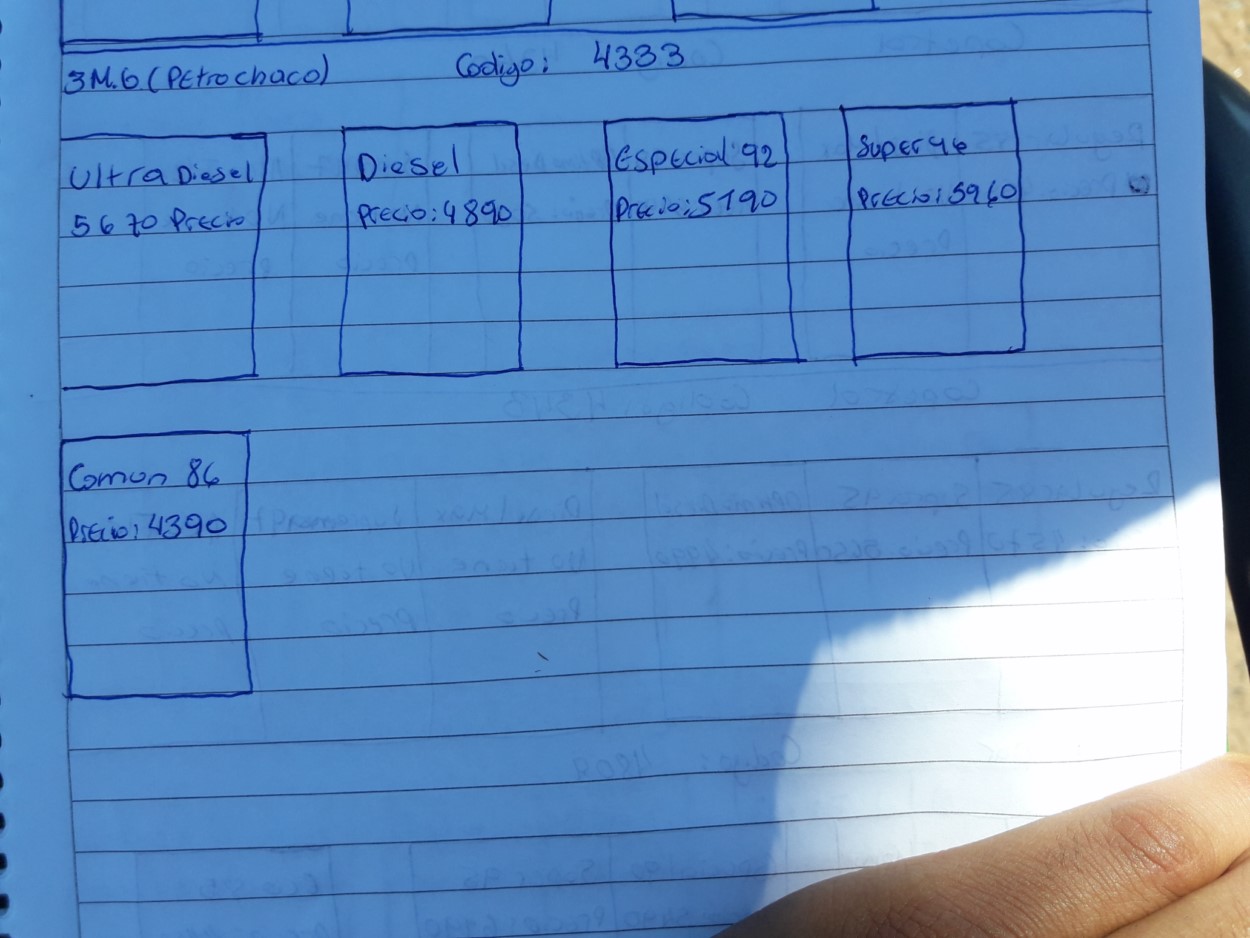 3M.G (Petrochaco) Codigo: 4333
Ultra Diesel
5670 Precio
Diesel
Precio: 4890
Especial 92
Precio: 5190
Super 96
Precio: 5960
Comun 86
Precio: 4390